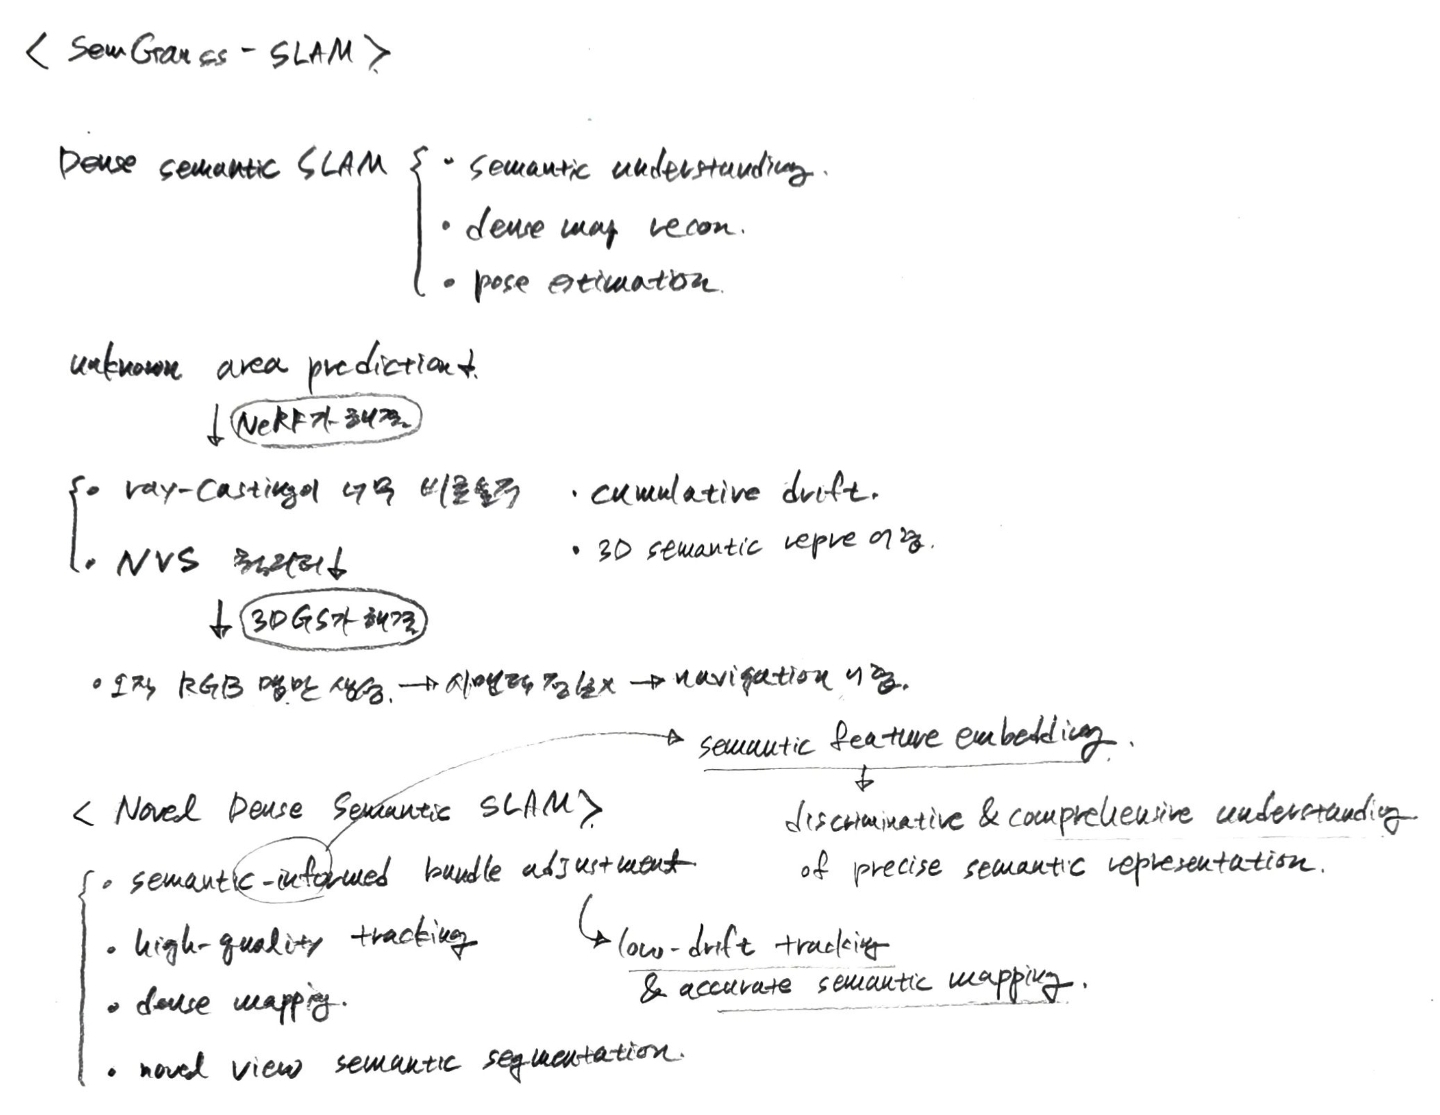 < SemGauss - SLAM >
Dense semantic SLAM { · semantic understanding.
· dense map recon.
· pose estimation.
unknown area prediction↓
↓ NeRF가 해결.
· ray-casting이 너무 비효율적 · cumulative drift.
· NVS 퀄리티↓ · 3D semantic repre 어려움.
↓ 3DGS가 해결
· 오직 RGB 맵만 생성. → 시맨틱 정보x → navigation 어려움.
semantic feature embedding.
↓
< Novel Dense Semantic SLAM >
discriminative & comprehensive understanding
of precise semantic representation.
· semantic-informed bundle adjustment
· high-quality tracking
low-drift tracking
& accurate semantic mapping.
· dense mapping.
· novel view semantic segmentation.